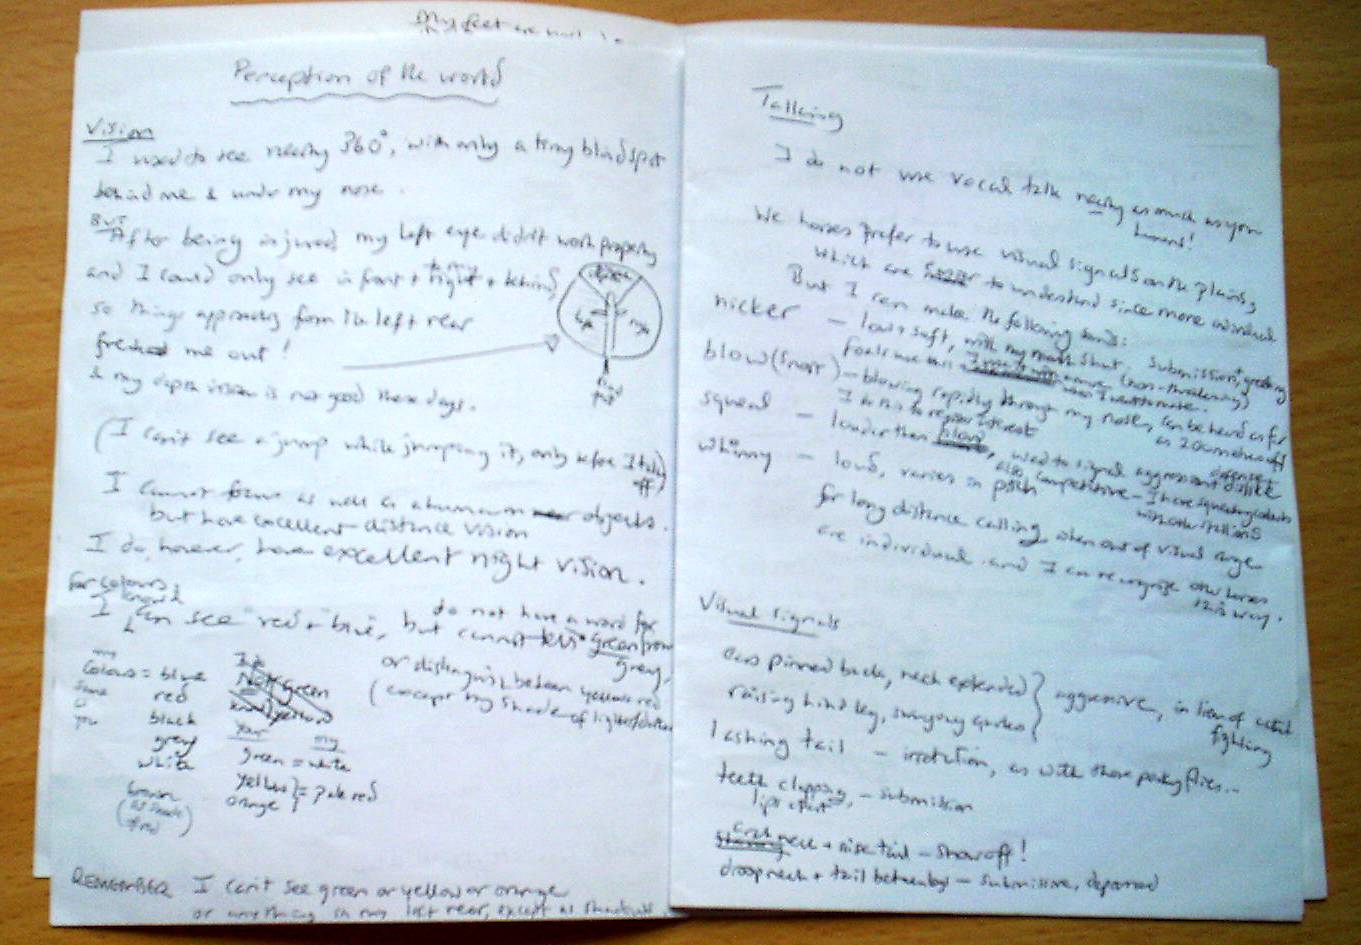 My feet are
Perception of the world
Vision
I used to see nearly 360°, with only a tiny blind spot
behind me & under my nose.
BUT
After being injured my left eye didn't work properly
and I could only see in front + to my right + behind
so things approaching from the left rear
freaked me out!
& my depth vision is not good these days.
(I can't see a jump while jumping it, only before I take
off)
I cannot focus as well as a human on objects.
but have excellent distance vision
I do, however, have excellent night vision.
For colours
I can see red + blue, but cannot tell green from
grey,
do not have a word for
or distinguish between yellow + red
(except by shade of lighter/darker
my
Colours = blue
same
as
you
red
black
grey
white
brown
(as shade
of red)
Not green
your my
green = white
yellow } = pale red
orange }
left
right
blind
spot
REMEMBER I can't see green or yellow or orange
or anything in my left rear, except as shadows
Talking
I do not use vocal talk nearly as much as you
humans!
We horses prefer to use visual signals on the plains,
which are easier to understand since more individual
But I can make the following sounds:
nicker – low + soft, with my mouth shut. submission, + greeting
(non-threatening)
foals use this
blow (snort) – blowing rapidly through my nose, can be heard as far
as 200 metres off
I do this to register interest
squeal – louder than blow, used to signal aggression + dislike
defensive
also competitive – I have squealing contests
with other stallions
whinny – loud, varies in pitch
for long distance calling, when out of visual range.
are individual and I can recognize other horses
this way.
Visual signals
ears pinned back, neck extended }
raising hind leg, swinging quarters } aggressive, in lieu of actual
fighting
lashing tail – irritation, as with those pesky flies...
teeth clapping, – submission
lips apart
arch neck + raise tail – show off!
droop neck + tail between legs – submissive, depressed